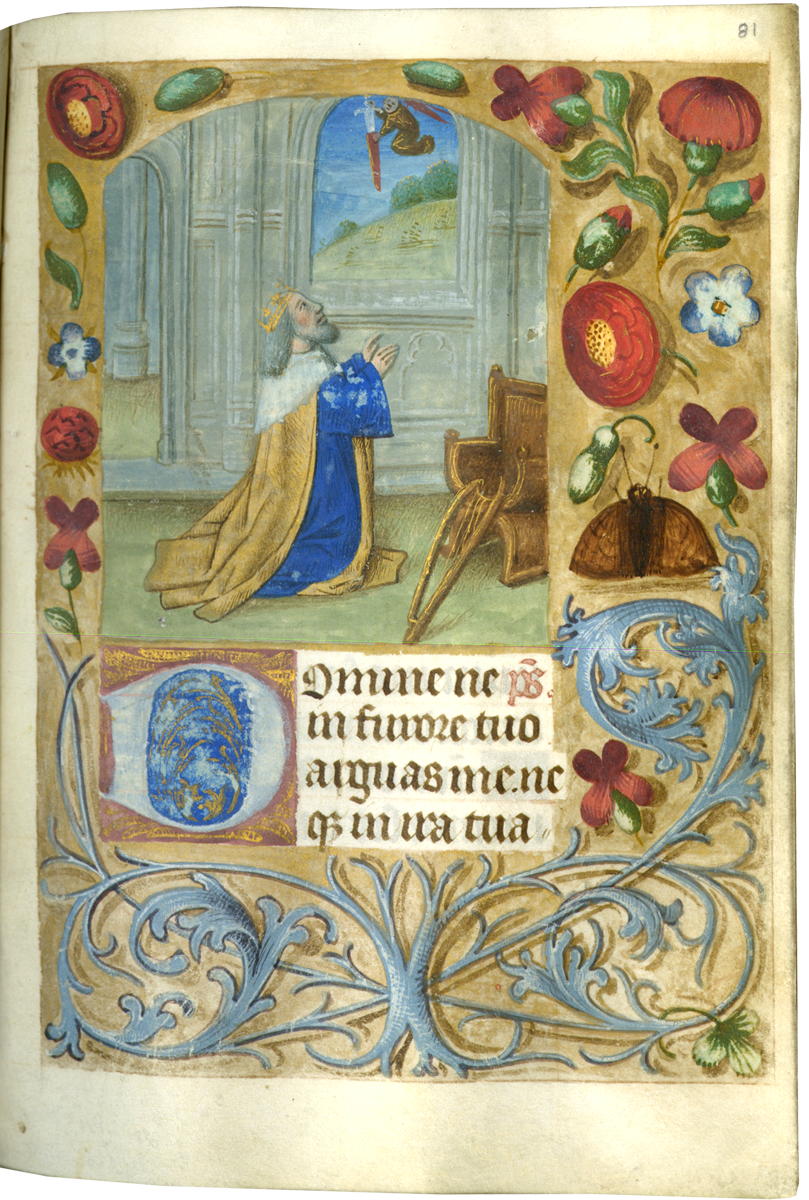 81
Domine ne p̅s̅.
in furore tuo
arguas me. ne
qꝫ in ira tua